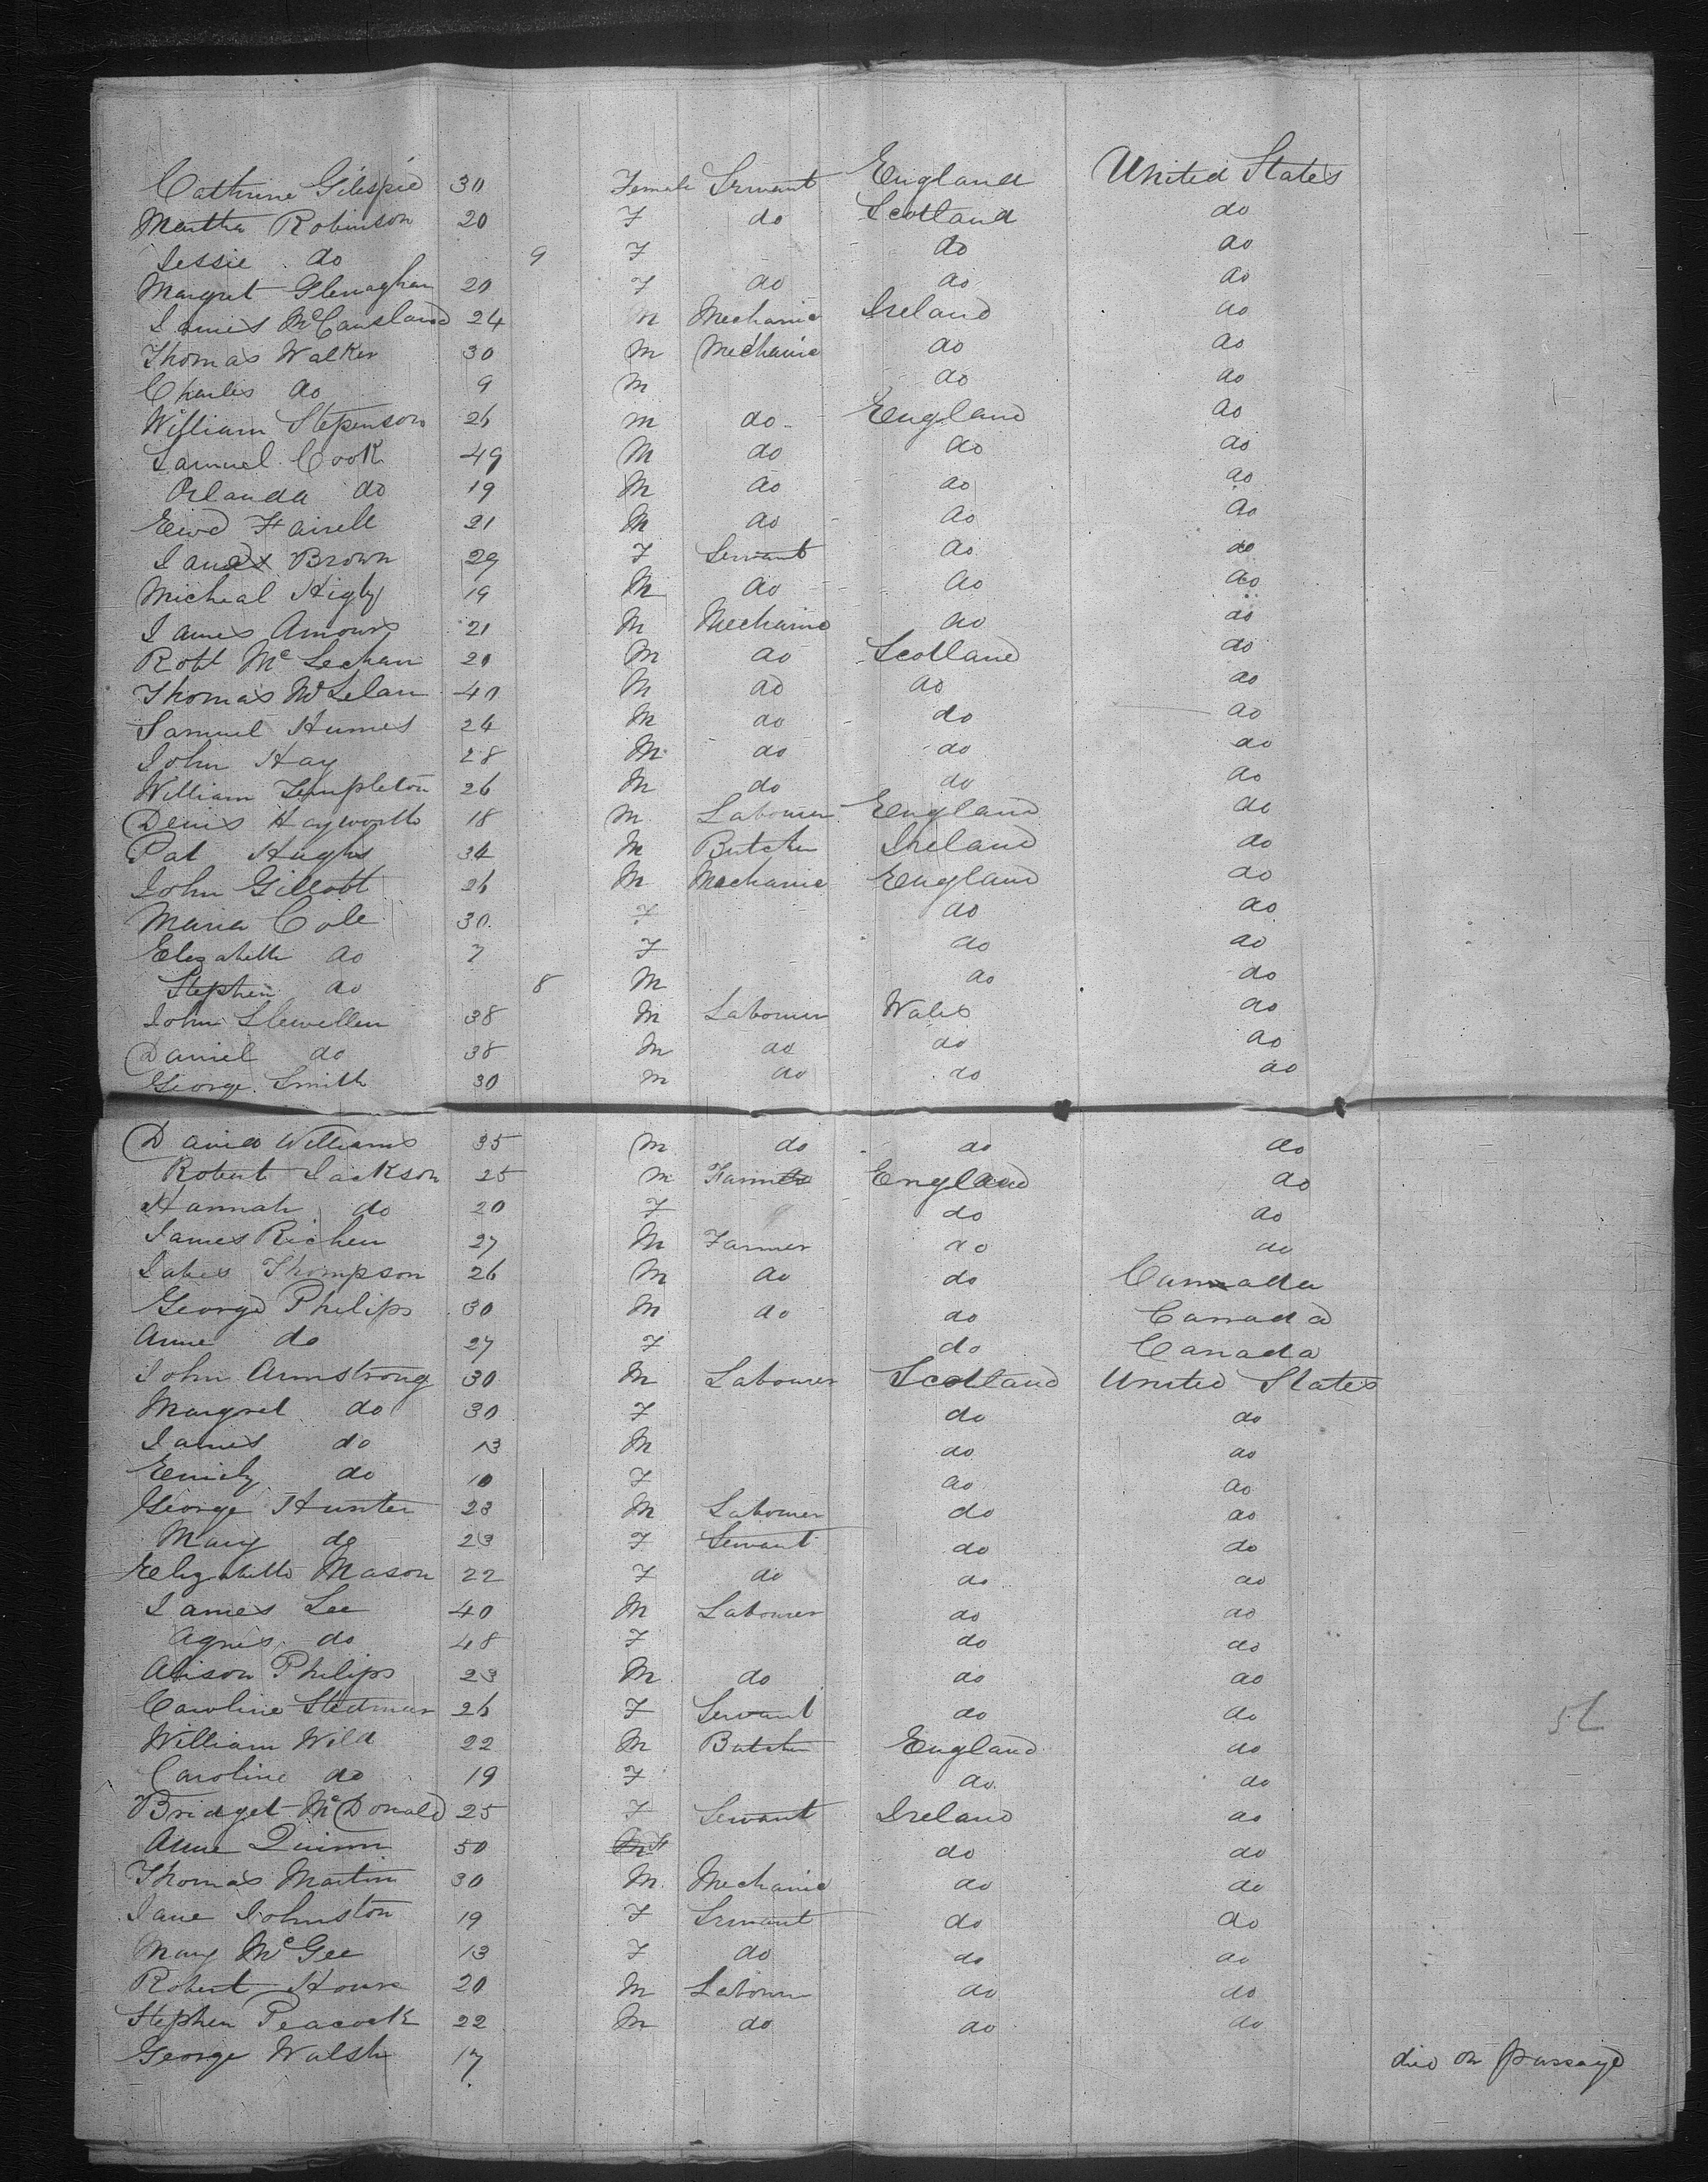 Cathrine Gilespie 30 Female Servant England United States
Martha Robinson 20 F do Scotland do
Jessie do 9 F do do
Margret Glenaghan 20 F do do do
James McCausland 24 M Mechanic Ireland do
Thomas Walker 30 M Mechanic do do
Charles do 9 M do do
William Stepenson 26 M do England do
Samuel Cook 49 M do do do
Orlanda do 19 M do do do
21 M do do do
Brown 29 F Servant do do
Micheal Higby 19 M do do do
James Amours 21 M Mechanic do do
Robt Mc Lechan 20 M do Scotland do
Thomas McLelan 40 M do do do
Samuel Humes 24 M do do do
John Hay 28 M do do do
William Templeton 26 M do do do
Denis Hayworth 18 M Labourer England do
Pat Hughs 34 M Butcher Ireland do
John Gillott 26 M Mechanic England do
Maria Cole 30 F do do
Elezabeth do 7 F do do
Stephen do 8 M do do
John Llewellen 38 M Labourer Wales do
Daniel do 38 M do do do
George Smith 30 M do do do
David Williams 35 M do do do
Robert Jackson 25 M Farmer England do
Hannah do 20 F do do
James Richen 27 M Farmer do do
Thompson 26 M do do Cannada
George Philips 30 M do do Canada
Anne do 27 F do Canada
John Armstrong 30 M Labourer Scotland United States
Margret do 30 F do do
James do 13 M do do
Emily do 10 F do do
George Hunter 23 M Labourer do do
Mary do 23 F Servant do do
Elizabeth Mason 22 F do do do
James Lee 40 M Labourer do do
Agnes do 48 F do do
Alison Philips 23 M do do do
Caroline Stedman 26 F Servant do do
William Wild 22 M Butcher England do
Caroline do 19 F do do
Bridget McDonald 25 F Servant Ireland do
Anne Quinn 50 F do do
Thomas Martin 30 M Mechanic do do
Jane Johnston 19 F Servant do do
Mary McGee 13 F do do do
Robert 20 M Labourer do do
Stephen Peacock 22 M do do do
George Walsh 17 died on passage